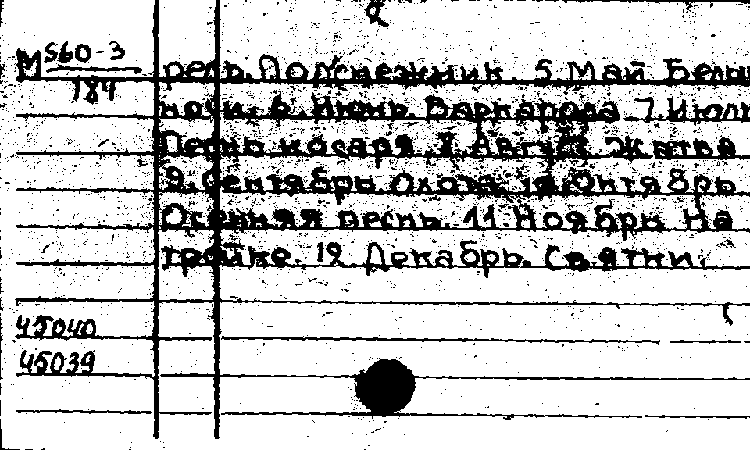 2
М S60-3
184
рель. Подснежник. 5. Май. Белые
ночи. 6. Июнь. Баркарола. 7. Июль
Песнь косаря. 8. Август. Жатва
9. Сентябрь. Охота. 10. Октябрь
Осенняя песнь. 11. Ноябрь. На
тройке. 12. Декабрь. Святки.
45040
45039